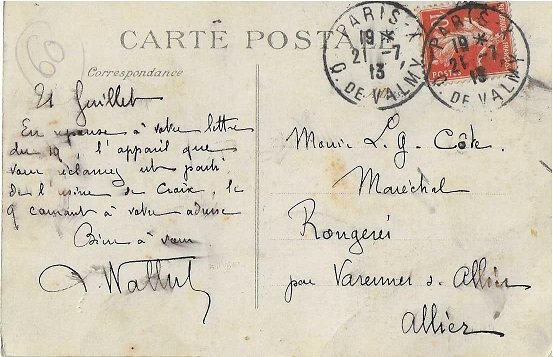 CARTE POSTALE
Correspondance
PARIS-X
19 *
21 -7
13
Q. DE VALMY
PARIS-X
19 *
21 -7
13
Q. DE VALMY
POSTES
60
21 Juillet
En reponse à votre lettre
du 19, l'appareil que
vous réclamez est parti
de l'usine de Croix, le
9 courant à votre adresse
Bien à vous
Monsr L. G. Côte
Maréchal
Rongères
par Varennes s. Allier
Allier